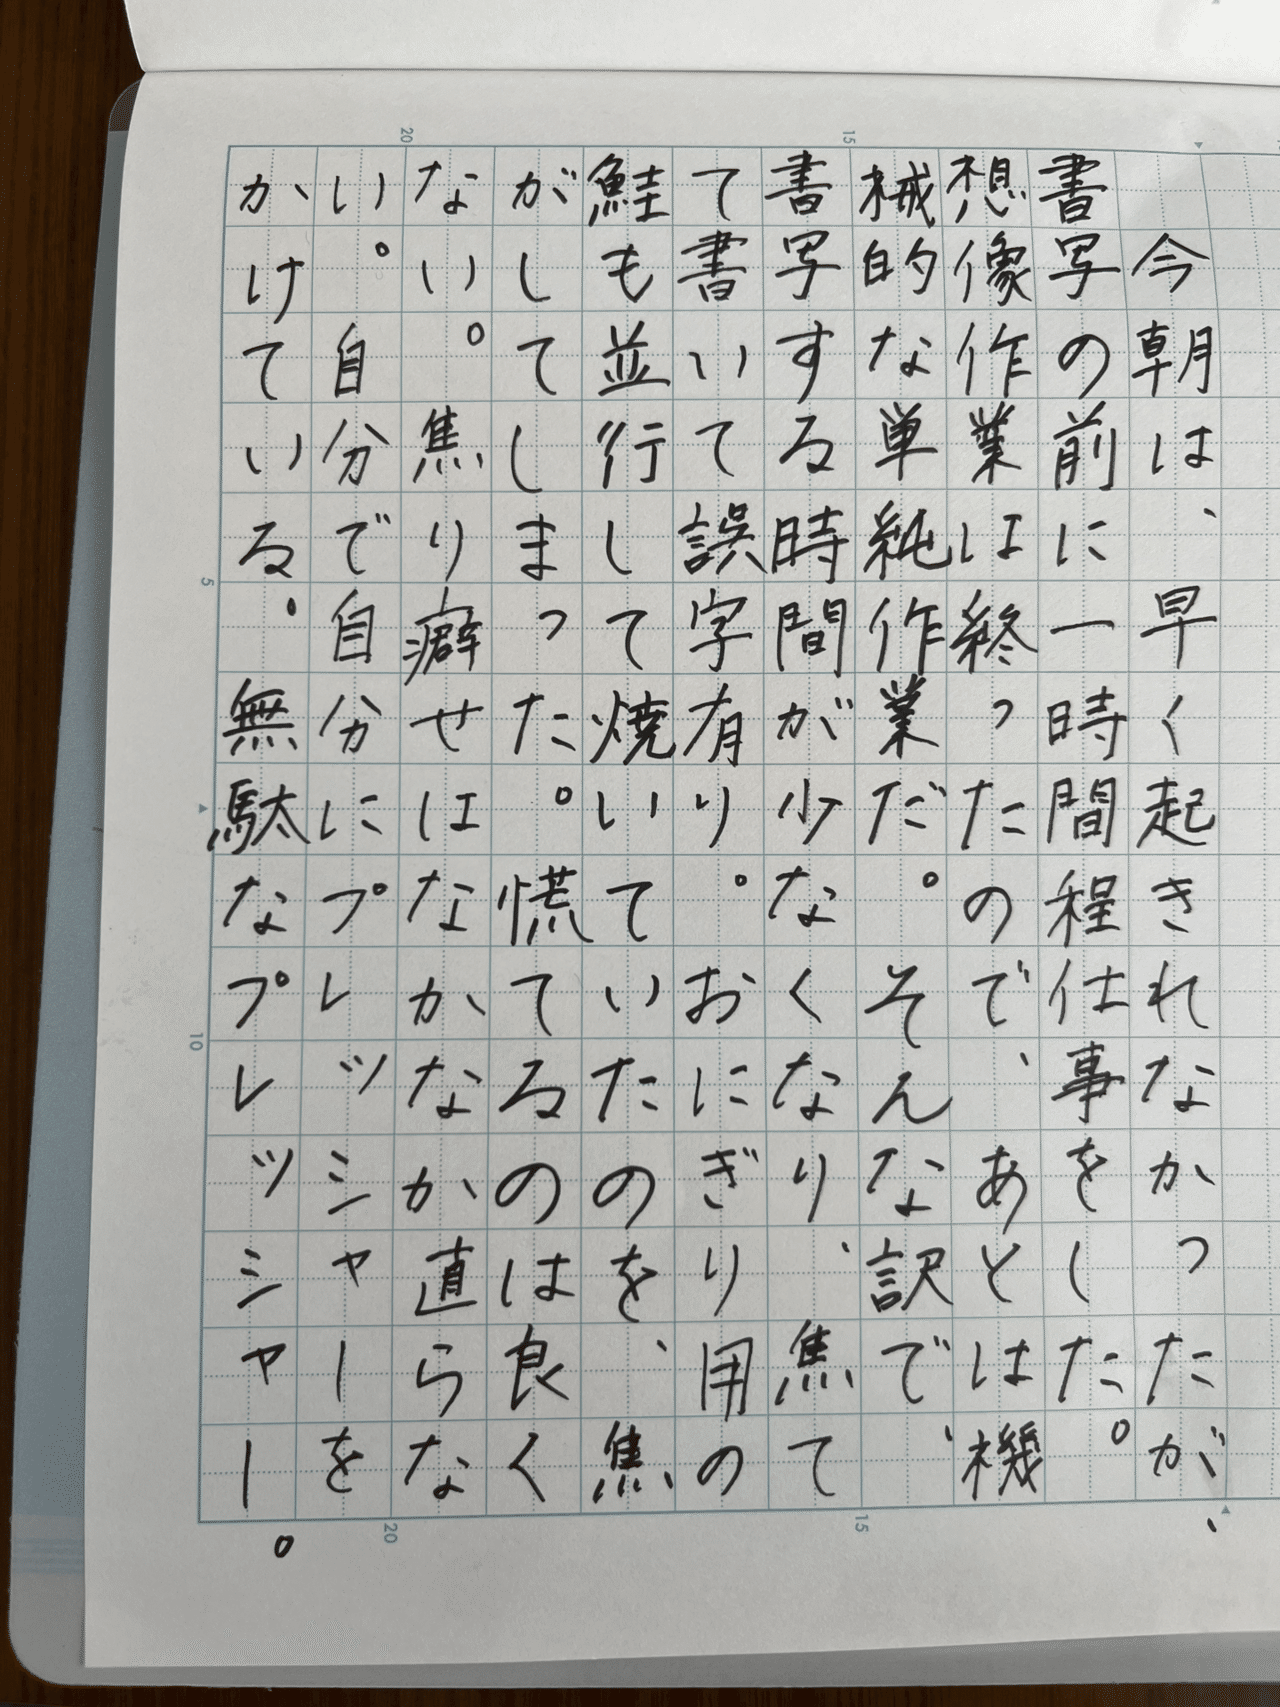 今朝は、早く起きれなかったが、
書写の前に一時間程仕事をした。
想像作業は終ったので、あとは機
械的な単純作業だ。そんな訳で、
書写する時間が少なくなり、焦て
て書いて誤字有り。おにぎり用の
鮭も並行して焼いていたのを、焦
がしてしまった。慌てるのは良く
ない。焦り癖せはなかなか直らな
い。自分で自分にプレッシャーを
かけている。無駄なプレッシャー。
15
20
5
10
15
20